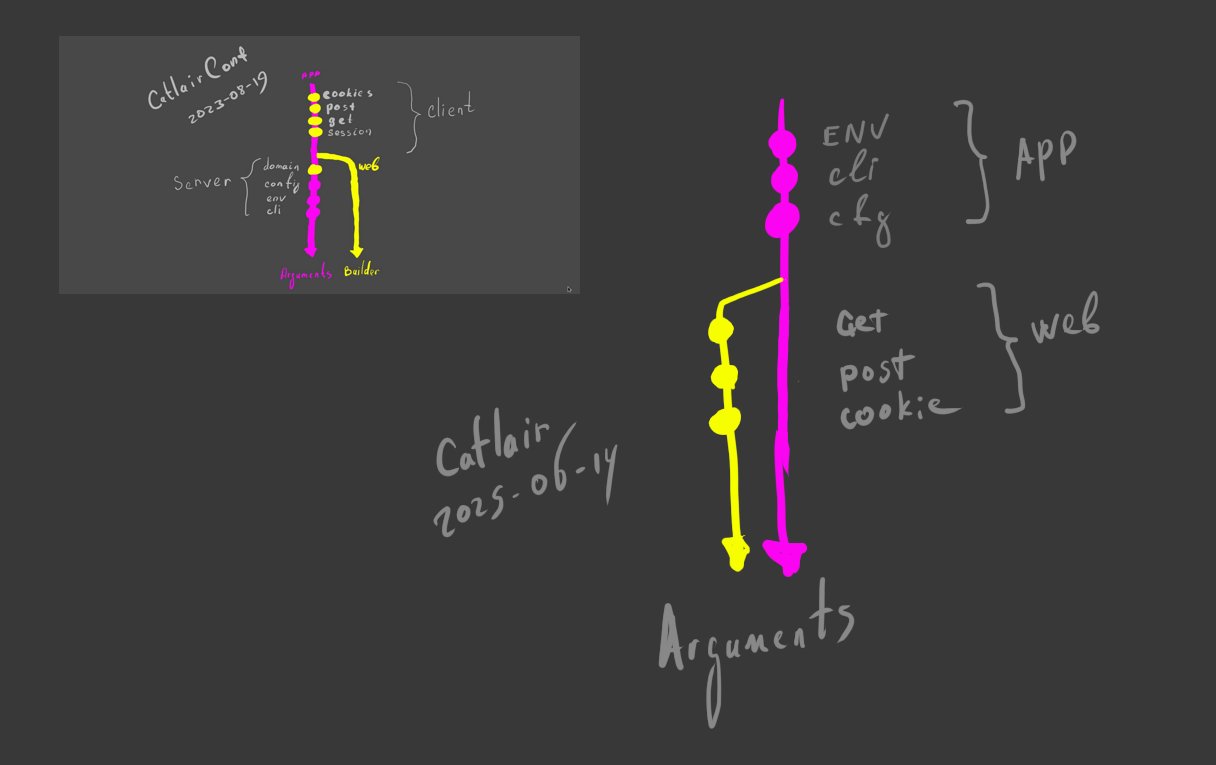 Catlair Conf
2023-08-19
APP
cookies
post
get
session
client
Server
domain
config
env
cli
web
Arguments
Builder
ENV
cli
cfg
APP
Get
post
cookie
web
Catlair
2025-06-14
Arguments